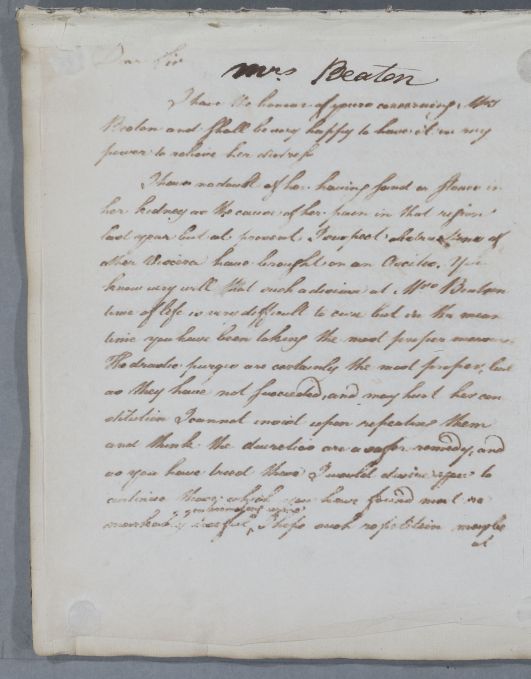 Dear Sir
Mrs Beaton
I have the honour of yours concerning Mrs
Beaton and shall be very happy to have it in my
power to relieve her distress
I have no doubt of her having sand or stones in
her kidney as the cause of her pain in that region
last year but at present I suspect obstructions of
other Viscera have brought on an Ascites. You
know very well that such a disease at Mrs Beatons
time of life is very difficult to cure but in the mean
time you have been taking the most proper measures.
Hydragogue purges are certainly the most proper, but
as they have not succeeded, and may hurt her con
stitution I cannot insist upon repeating them
and think the diuretics are a safer remedy, and
as you have tried these I would desire you to
continue those which you have found most re
markably usefull, I hope such repetition may be
at